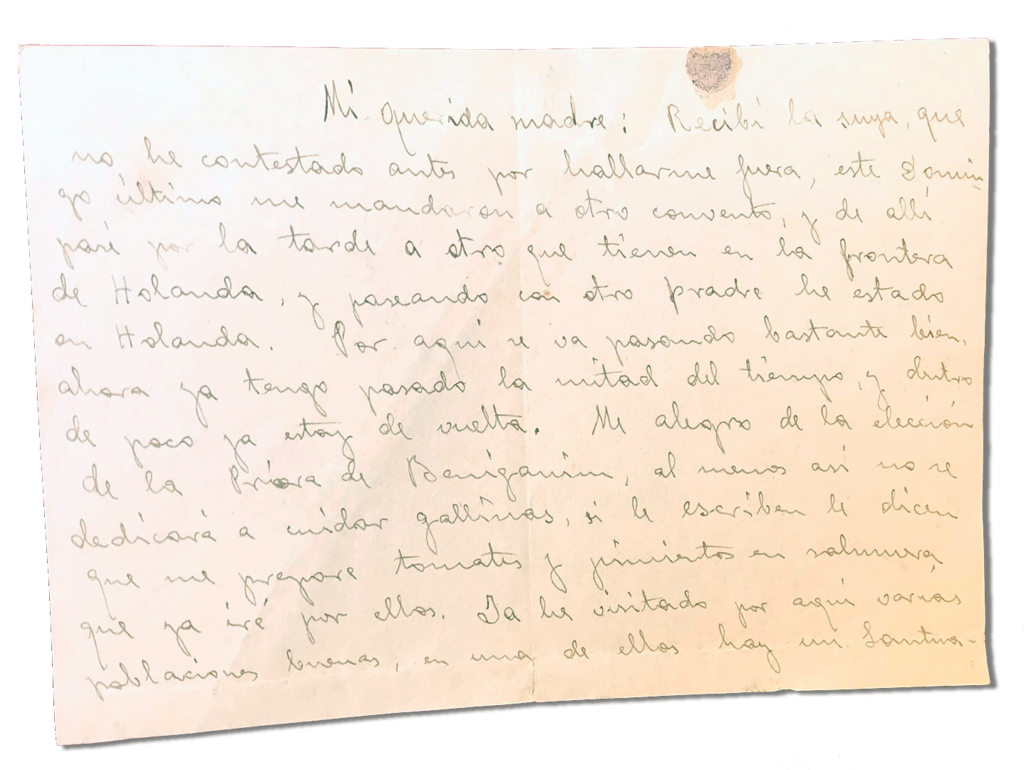 Mi querida madre: Recibí la suya, que
no he contestado antes por hallarme fuera, este Domin-
go último me mandaron a otro convento, y de allí
pasé por la tarde a otro que tienen en la frontera
de Holanda, y paseando con otro pradre he estado
en Holanda. Por aquí se va pasando bastante bien,
ahora ya tengo pasado la mitad del tiempo, y dentro
de poco ya estoy de vuelta. Me alegro de la elección
de la Priora de Beniganim, al menos así no se
dedicará a cuidar gallinas, si le escriben le dicen
que me prepare tomates y pimientos en salmuera,
que ya iré por ellos. Ya he visitado por aquí varias
poblaciones buenas, en una de ellas hay un Santua-